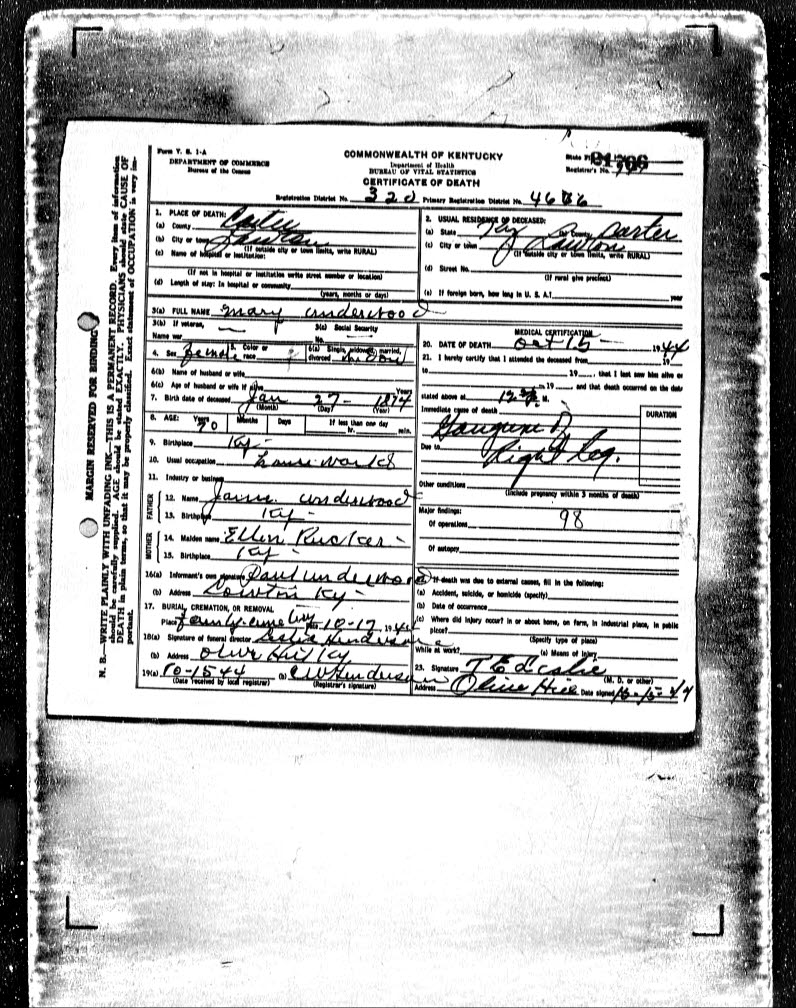 Form V. S. 1-A
DEPARTMENT OF COMMERCE
Bureau of the Census
COMMONWEALTH OF KENTUCKY
Department of Health
BUREAU OF VITAL STATISTICS
CERTIFICATE OF DEATH
State File
Registrar's No.
Registration District No. 320 Primary Registration District No.
N. B.—WRITE PLAINLY WITH UNFADING INK—THIS IS A PERMANENT RECORD. Every item of information
should be carefully supplied. AGE should be stated EXACTLY. PHYSICIANS should state CAUSE OF
DEATH in plain terms, so that it may be properly classified. Exact statement of OCCUPATION is very im-
portant.
MARGIN RESERVED FOR BINDING
1. PLACE OF DEATH:
(a) County Carter
(b) City or town Lawton
(If outside city or town limits, write RURAL)
(c) Name of hospital or institution:
(If not in hospital or institution write street number or location)
(d) Length of stay: In hospital or community
(years, months or days)
2. USUAL RESIDENCE OF DECEASED:
(a) State Ky (b) County Carter
(c) City or town Lawton
(If outside city or town limits, write RURAL)
(d) Street No.
(If rural give precinct)
(e) If foreign born, how long in U. S. A.? year
3(a) FULL NAME Mary Underwood
3(b) If veteran, 3(c) Social Security
Name war — No.
4. Sex Female 5. Color or race 6(a) Single, widowed, married, divorced
6(b) Name of husband or wife
6(c) Age of husband or wife if alive Years
7. Birth date of deceased Jan 27- 1874
(Month) (Day) (Year)
8. AGE: Years 70 Months Days If less than one day
hr. min.
9. Birthplace Ky-
10. Usual occupation house works
11. Industry or business
FATHER
12. Name Underwood
13. Birthplace Ky-
MOTHER
14. Maiden name Ellen Rucker-
15. Birthplace Ky-
16(a) Informant's own signature Paul Underwood
(b) Address Lawton Ky-
17. BURIAL, CREMATION, OR REMOVAL
Place family cemetery Date 10-17, 1944
18(a) Signature of funeral director Henderson
(b) Address Olive Hill Ky
19(a) 10-15 44 (b) Henderson
(Date received by local registrar) (Registrar's signature)
MEDICAL CERTIFICATION
20. DATE OF DEATH Oct 15- 1944
21. I hereby certify that I attended the deceased from 19
to 19 , that I last saw him alive on
19 and that death occurred on the date
stated above at 12 M.
Immediate cause of death DURATION
Gangrene of
Due to Right Leg.
Other conditions
(Include pregnancy within 3 months of death)
Major findings: 98
Of operations
Of autopsy
22. If death was due to external causes, fill in the following:
(a) Accident, suicide, or homicide (specify)
(b) Date of occurrence
(c) Where did injury occur? in or about home, on farm, in industrial place, in public
place?
(Specify type of place)
While at work? (e) Means of injury
23. Signature T E Leslie
(M. D. or other)
Address Olive Hill Date signed 10-15-44